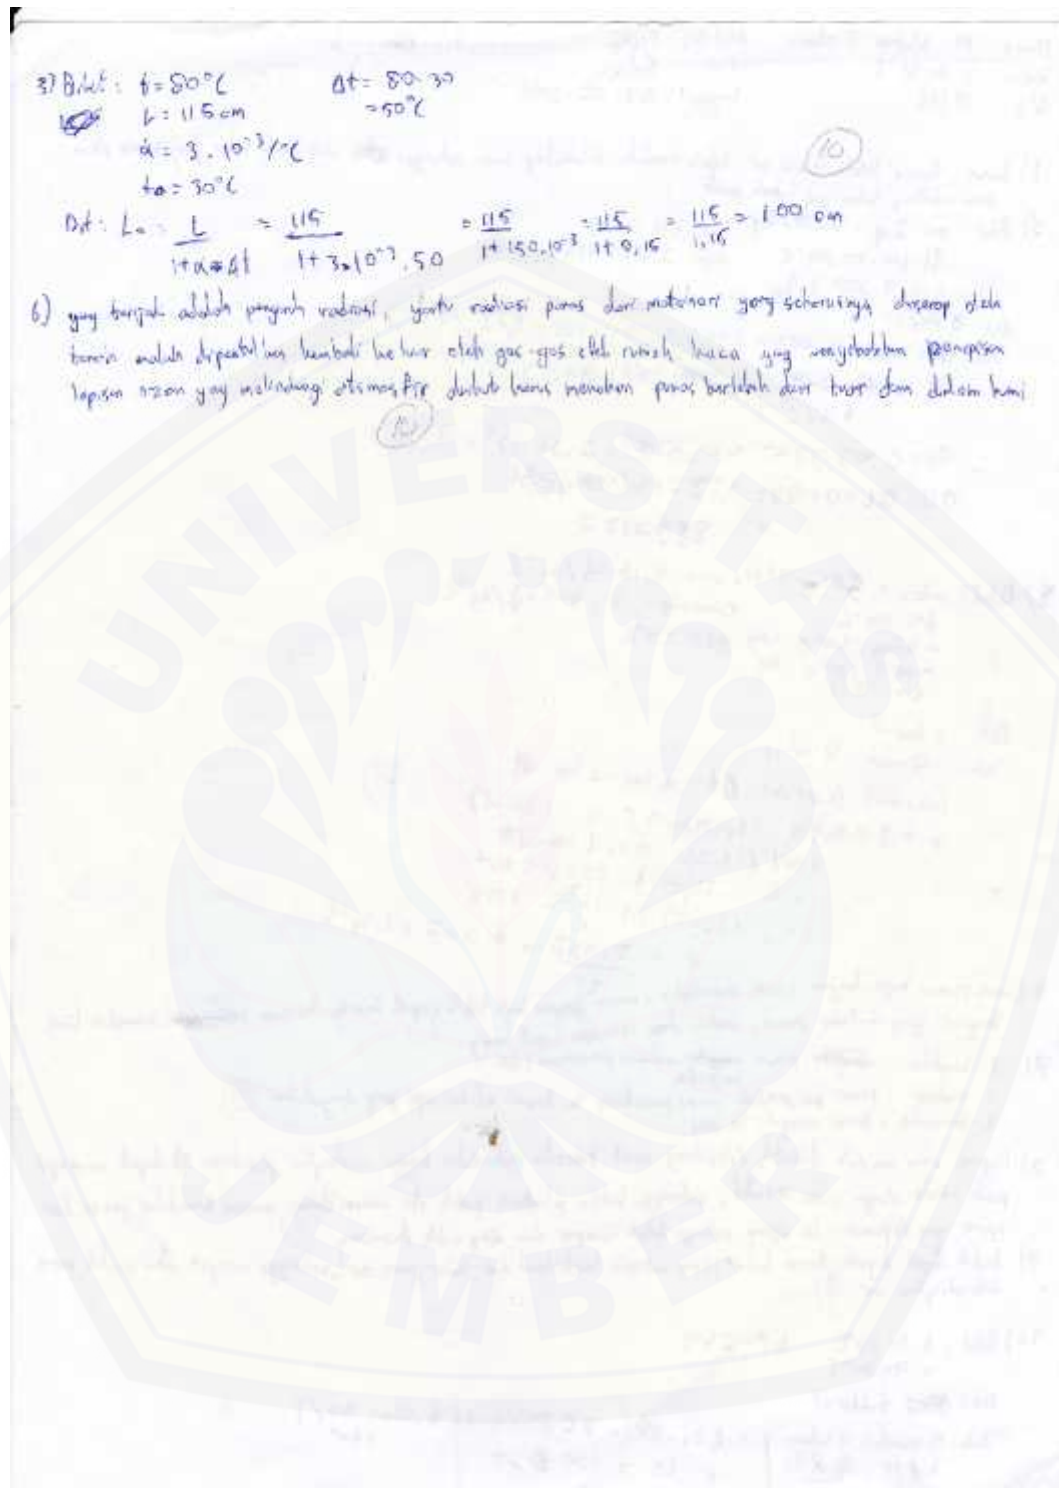 3) Diket : t = 80°C Δt = 80-30
L = 115 cm = 50°C
α = 3 . 10⁻³/°C
to = 30°C
10
Dit : Lo = L/(1+α Δt) = 115/(1+3.10⁻³.50) = 115/(1+150.10⁻³) = 115/(1+0,15) = 115/1,15 = 100 cm
6) yang terjadi adalah pengaruh radiasi, yaitu radiasi panas dari matahari yang seharusnya diserap oleh
malah kembali ke luar oleh gas-gas efek rumah kaca yang menyebabkan penipisan
lapisan ozon yang melindungi panas berlebih dari luar dan dalam bumi
10
UNIVERSITAS
JEMBER